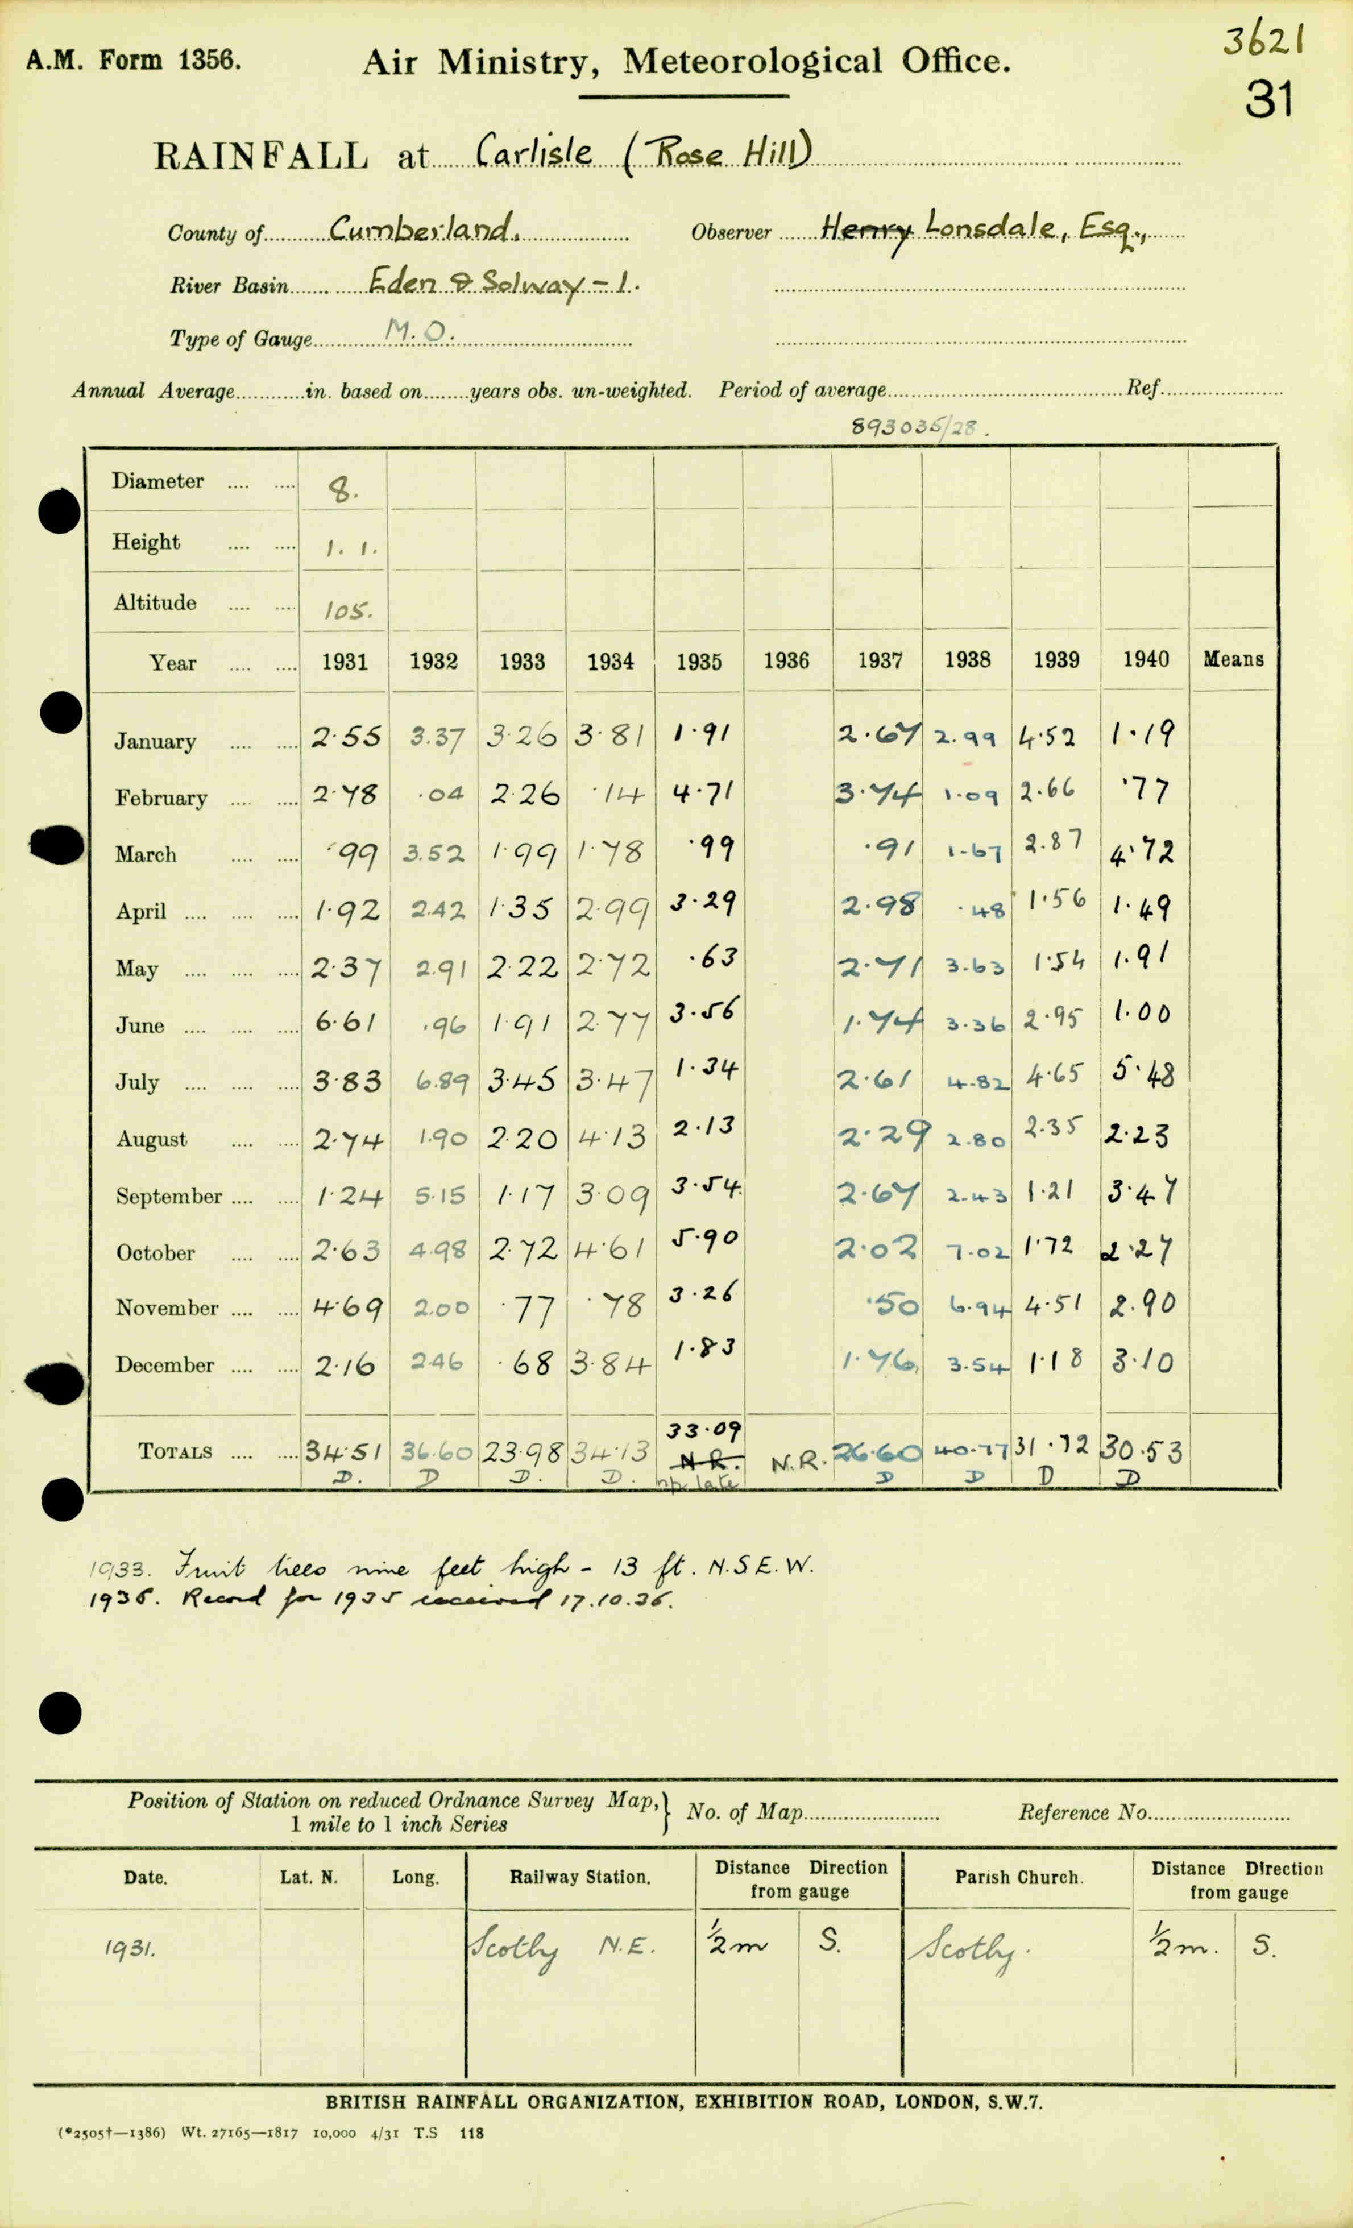 3621
A.M. Form 1356. Air Ministry, Meteorological Office.
31
RAINFALL at Carlisle (Rose Hill)
County of Cumberland. Observer Henry Lonsdale, Esq.,
River Basin Eden & Solway - 1.
Type of Gauge M.O.
Annual Average in. based on years obs. un-weighted. Period of average Ref.
893036/28.
Diameter 8.
Height 1. 1.
Altitude 105.
Year 1931 1932 1933 1934 1935 1936 1937 1938 1939 1940 Means
January 2·55 3.37 3·26 3·81 1·91 2·67 2.99 4·52 1·19
February 2·78 ·04 2·26 ·14 4·71 3·74 1·09 2·66 ·77
March ·99 3.52 1·99 1·78 ·99 ·91 1·67 2·87 4·72
April 1·92 2.42 1·35 2·99 3·29 2·98 ·48 1·56 1·49
May 2·37 2.91 2·22 2·72 ·63 2·71 3·63 1·54 1·91
June 6·61 ·96 1·91 2·77 3·56 1·74 3·36 2·95 1·00
July 3·83 6.89 3·45 3·47 1·34 2·61 4·82 4·65 5·48
August 2·74 1.90 2·20 4·13 2·13 2·29 2·80 2·35 2·23
September 1·24 5·15 1·17 3·09 3·54 2·67 2·43 1·21 3·47
October 2·63 4·98 2·72 4·61 5·90 2·02 7·02 1·72 2·27
November 4·69 2.00 ·77 ·78 3·26 ·50 6·94 4·51 2·90
December 2·16 2.46 ·68 3·84 1·83 1·76 3·54 1·18 3·10
33·09
TOTALS 34·51 36·60 23·98 34·13 N.R. N.R. 26·60 40·77 31·72 30·53
D. D D. D. np late D D D D
1933. Fruit trees nine feet high - 13 ft. N.S.E.W.
1936. Record for 1935 received 17.10.36.
Position of Station on reduced Ordnance Survey Map, No. of Map Reference No.
1 mile to 1 inch Series
Date. Lat. N. Long. Railway Station. Distance Direction from gauge Parish Church. Distance Direction from gauge
1931. Scotby N.E. ½ m S. Scotby. ½ m. S.
BRITISH RAINFALL ORGANIZATION, EXHIBITION ROAD, LONDON, S.W.7.
(*2505†—1386) Wt. 27165—1817 10,000 4/31 T.S 118